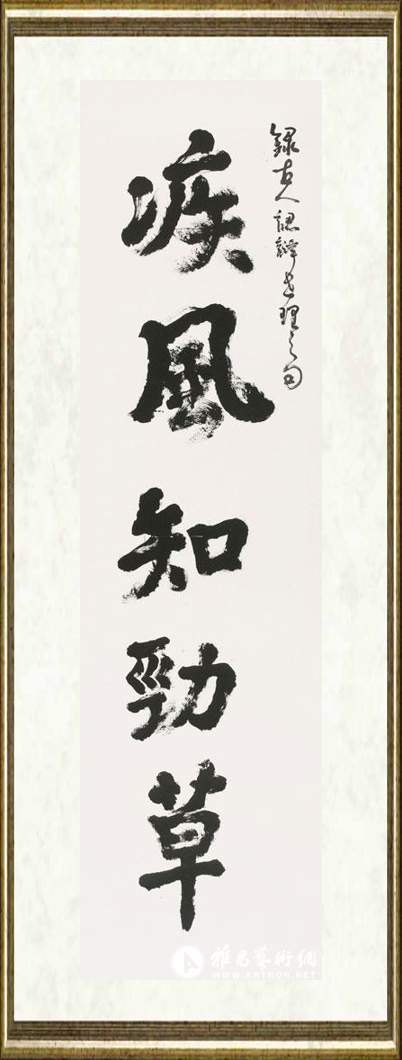 錄古人理之句
疾風知勁草
雅昌藝術網
WWW.ARTRON.NET